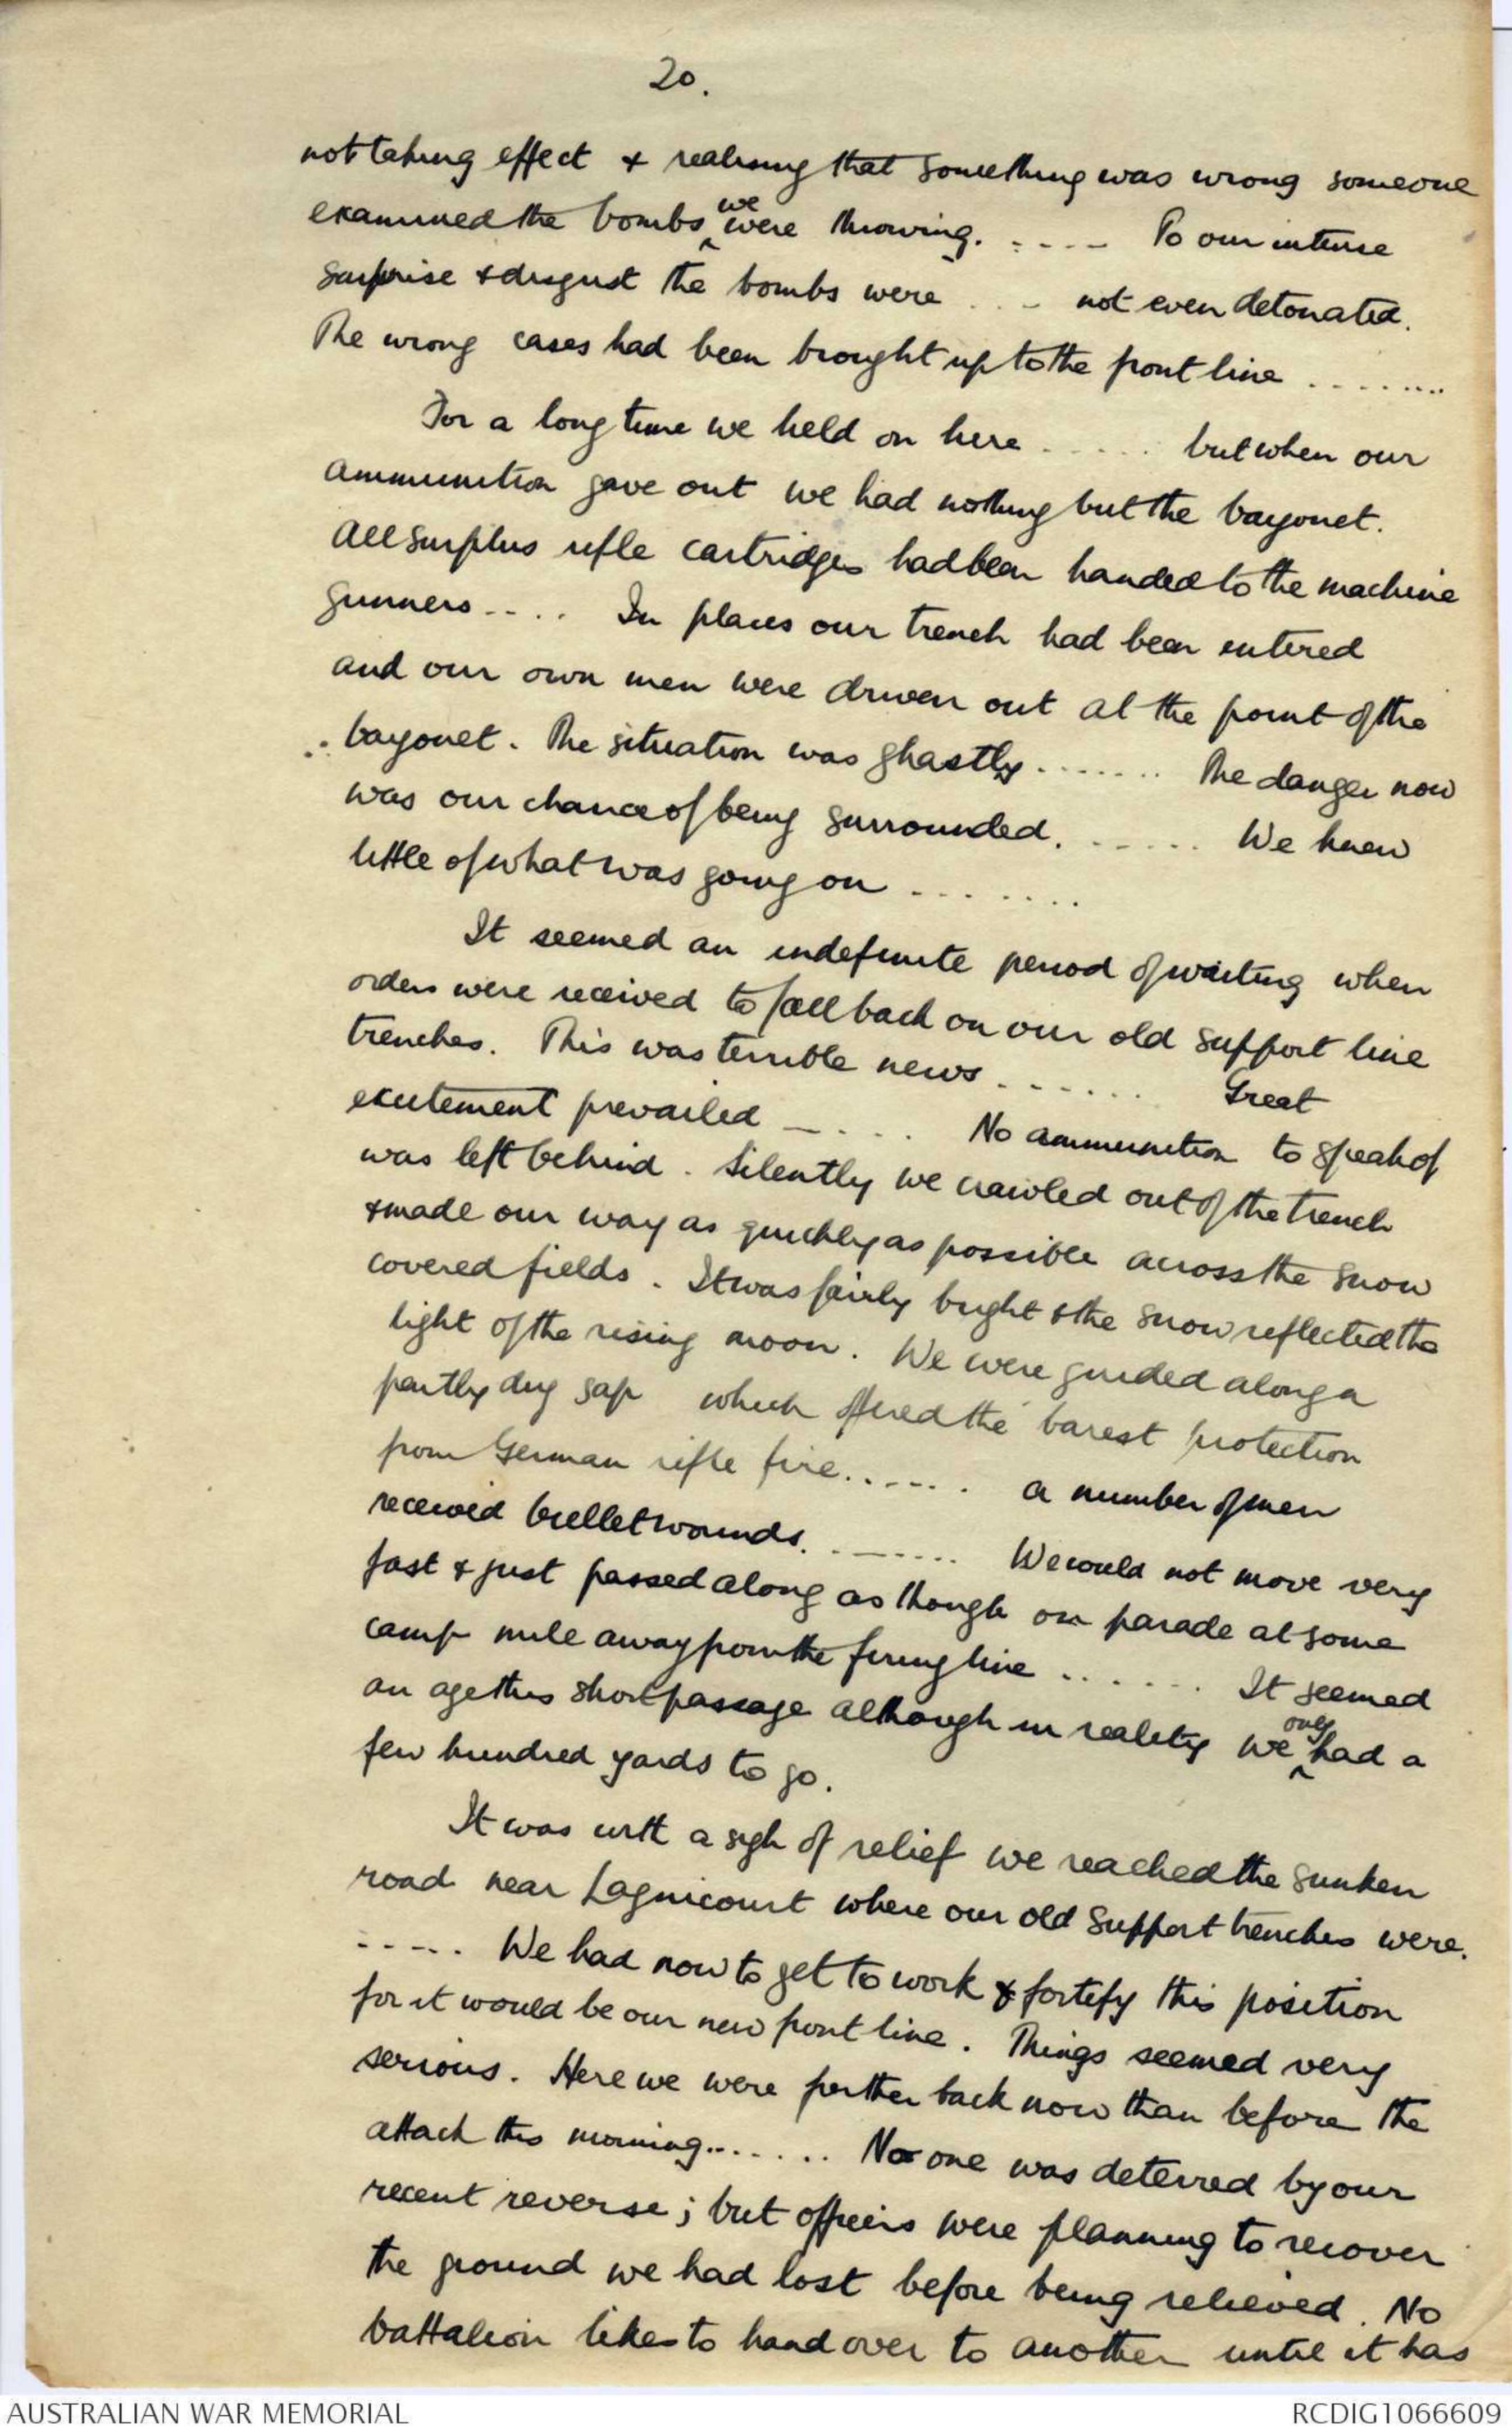 20.
not taking effect & realising that something was wrong someone
examined the bombs we were throwing. . - - - - To our intense
surprise & disgust the bombs were . . - not even detonated.
The wrong cases had been brought up to the front line . . . . . . . .
For a long time we held on here . . . . . but when our
ammunition gave out we had nothing but the bayonet.
All surplus rifle cartridges had been handed to the machine
gunners - - . . In places our trench had been entered
and our own men were driven out at the point of the
bayonet. The situation was ghastly . . . . . . . The danger now
was our chance of being surrounded. . . . . . . We knew
little of what was going on . . . . . . .
It seemed an indefinite period of waiting when
orders were received to fall back on our old support line
trenches. This was terrible news . . . . . . Great
excitement prevailed - . . . . No ammunition to speak of
was left behind. Silently we crawled out of the trench
& made our way as quickly as possible across the snow
covered fields. It was fairly bright & the snow reflected the
light of the rising moon. We were guided along a
partly dug sap which offered the barest protection
from German rifle fire. . . . . . . a number of men
received bullet wounds. . - - . . . . We could not move very
fast & just passed along as though on parade at some
camp mile away from the firing line . . . . . . . It seemed
an age this short passage although in reality we only had a
few hundred yards to go.
It was with a sigh of relief we reached the sunken
road near Lagnicourt where our old support trenches were.
- - - - . We had now to get to work & fortify this position
for it would be our new front line. Things seemed very
serious. Here we were further back now than before the
attack this morning. . . . . . . No one was deterred by our
recent reverse; but officers were planning to recover
the ground we had lost before being relieved. No
battalion likes to hand over to another until it has
AUSTRALIAN WAR MEMORIAL
RCDIG1066609